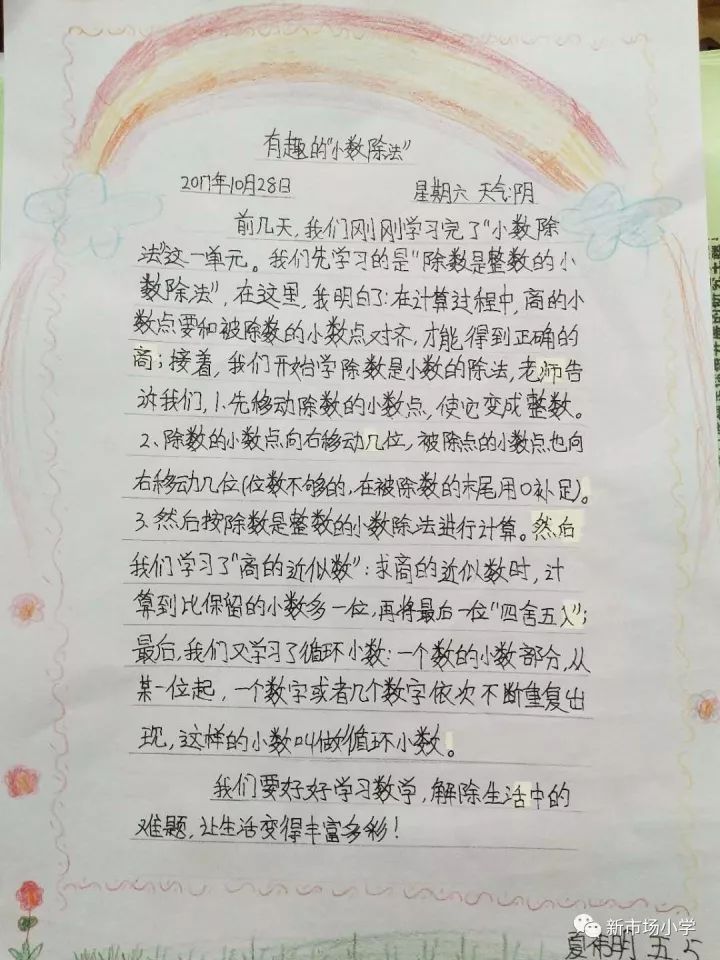 有趣的"小数除法"
2017年10月28日 星期六 天气:阴
前几天,我们刚刚学习完了"小数除
法"这一单元。我们先学习的是"除数是整数的小
数除法",在这里,我明白了:在计算过程中,商的小
数点要和被除数的小数点对齐,才能得到正确的
商;接着,我们开始学除数是小数的除法,老师告
诉我们,1.先移动除数的小数点,使它变成整数。
2、除数的小数点向右移动几位,被除点的小数点也向
右移动几位(位数不够的,在被除数的末尾用0补足)。
3.然后按除数是整数的小数除法进行计算。然后
我们学习了"商的近似数":求商的近似数时,计
算到比保留的小数多一位,再将最后一位"四舍五入";
最后,我们又学习了循环小数:一个数的小数部分,从
某一位起,一个数字或者几个数字依次不断重复出
现,这样的小数叫做循环小数。
我们要好好学习数学,解除生活中的
难题,让生活变得丰富多彩!
新市场小学
夏 明 五.5